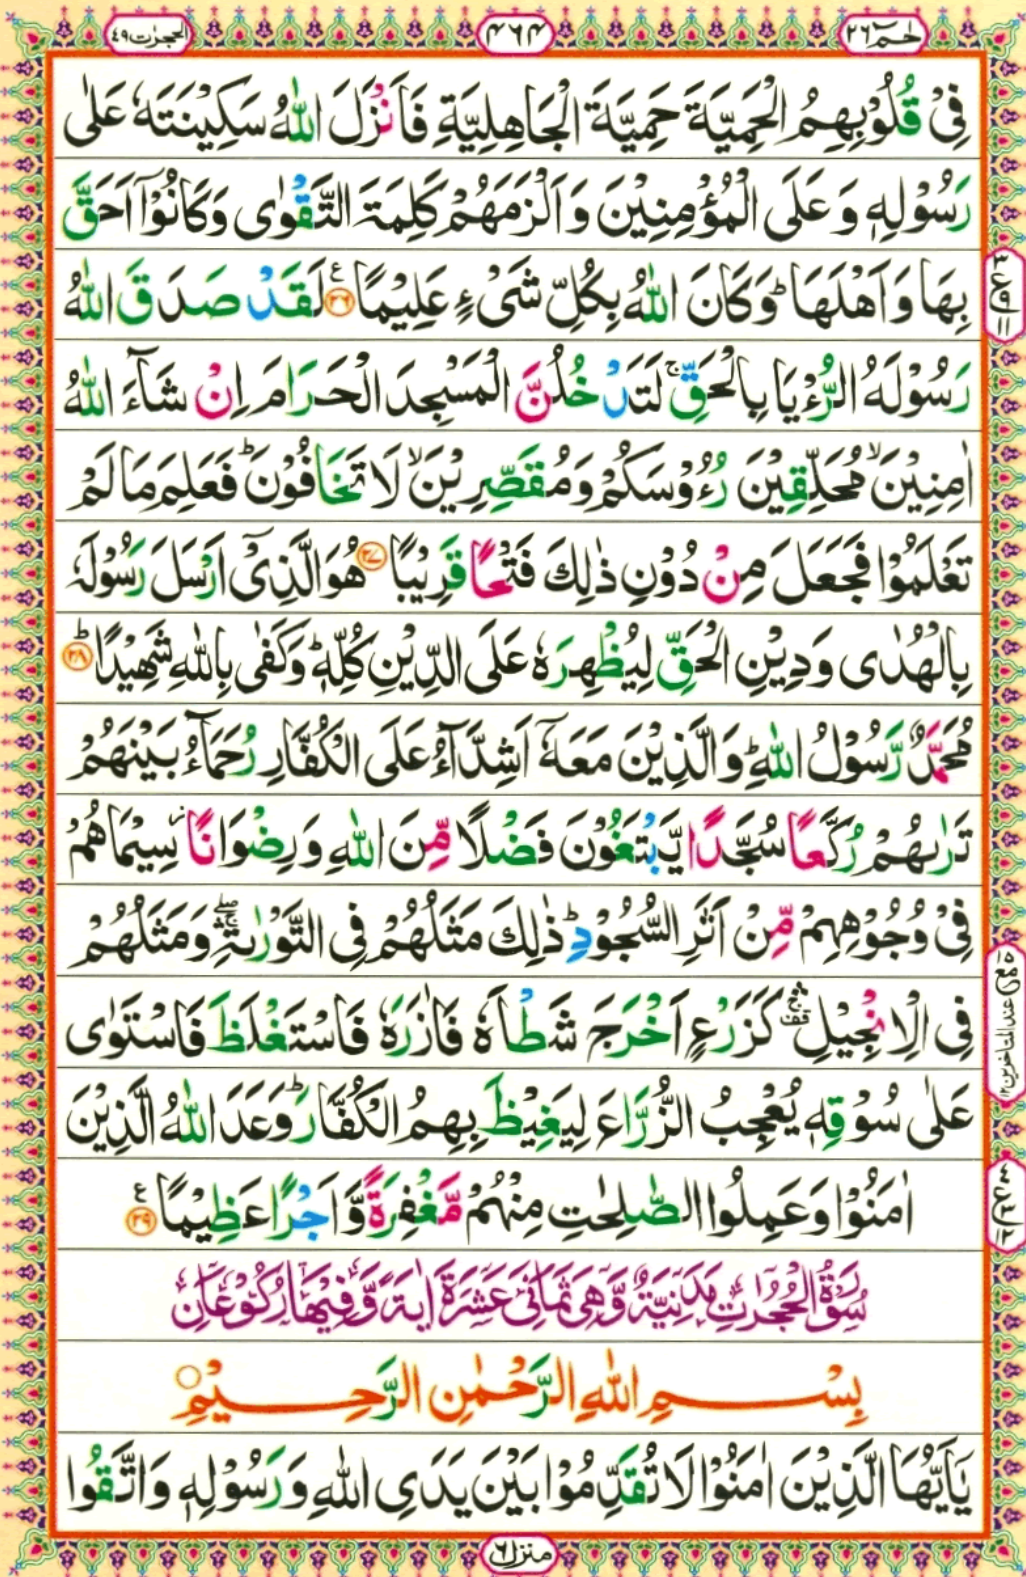 حٰمٓ ٢٦
٤٦٤
الحجرٰت ٤٩
فِیْ قُلُوْبِهِمُ الْحَمِیَّةَ حَمِیَّةَ الْجَاهِلِیَّةِ فَاَنْزَلَ اللّٰهُ سَكِیْنَتَهٗ عَلٰى
رَسُوْلِهٖ وَ عَلَى الْمُؤْمِنِیْنَ وَ اَلْزَمَهُمْ كَلِمَةَ التَّقْوٰى وَ كَانُوْۤا اَحَقَّ
بِهَا وَ اَهْلَهَاؕ وَ كَانَ اللّٰهُ بِكُلِّ شَیْءٍ عَلِیْمًا۠ ﴿٢٦﴾ لَقَدْ صَدَقَ اللّٰهُ
رَسُوْلَهُ الرُّءْیَا بِالْحَقِّۚ لَتَدْخُلُنَّ الْمَسْجِدَ الْحَرَامَ اِنْ شَآءَ اللّٰهُ
اٰمِنِیْنَۙ مُحَلِّقِیْنَ رُءُوْسَكُمْ وَ مُقَصِّرِیْنَۙ لَا تَخَافُوْنَؕ فَعَلِمَ مَا لَمْ
تَعْلَمُوْا فَجَعَلَ مِنْ دُوْنِ ذٰلِكَ فَتْحًا قَرِیْبًا ﴿٢٧﴾ هُوَ الَّذِیْۤ اَرْسَلَ رَسُوْلَهٗ
بِالْهُدٰى وَ دِیْنِ الْحَقِّ لِیُظْهِرَهٗ عَلَى الدِّیْنِ كُلِّهٖؕ وَ كَفٰى بِاللّٰهِ شَهِیْدًاؕ ﴿٢٨﴾
مُحَمَّدٌ رَّسُوْلُ اللّٰهِؕ وَ الَّذِیْنَ مَعَهٗۤ اَشِدَّآءُ عَلَى الْكُفَّارِ رُحَمَآءُ بَیْنَهُمْ
تَرٰىهُمْ رُكَّعًا سُجَّدًا یَّبْتَغُوْنَ فَضْلًا مِّنَ اللّٰهِ وَ رِضْوَانًا٘ سِیْمَاهُمْ
فِیْ وُجُوْهِهِمْ مِّنْ اَثَرِ السُّجُوْدِؕ ذٰلِكَ مَثَلُهُمْ فِی التَّوْرٰىةِ ۛۖۚ وَ مَثَلُهُمْ
فِی الْاِنْجِیْلِ ۛ۫ۚ كَزَرْعٍ اَخْرَجَ شَطْاَهٗ فَاٰزَرَهٗ فَاسْتَغْلَظَ فَاسْتَوٰى
عَلٰى سُوْقِهٖ یُعْجِبُ الزُّرَّاعَ لِیَغِیْظَ بِهِمُ الْكُفَّارَؕ وَعَدَ اللّٰهُ الَّذِیْنَ
اٰمَنُوْا وَ عَمِلُوا الصّٰلِحٰتِ مِنْهُمْ مَّغْفِرَةً وَّ اَجْرًا عَظِیْمًا۠ ﴿٢٩﴾
سُوْرَةُ الْحُجُرٰتِ مَدَنِیَّةٌ وَّ هِیَ ثَمَانِیَ عَشَرَةَ اٰیَةً وَّ فِیْهَا رُكُوْعَانِ
بِسْمِ اللّٰهِ الرَّحْمٰنِ الرَّحِیْمِ
یٰۤاَیُّهَا الَّذِیْنَ اٰمَنُوْا لَا تُقَدِّمُوْا بَیْنَ یَدَیِ اللّٰهِ وَ رَسُوْلِهٖ وَ اتَّقُوا
منزل ٦